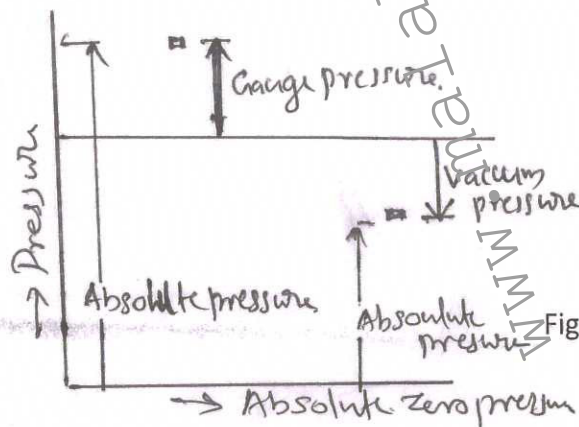 Gauge pressure.
Vaccum
pressure
→ Pressure
Absolute pressure
Absoulute
presure
Fig
→ Absolute zero pressure